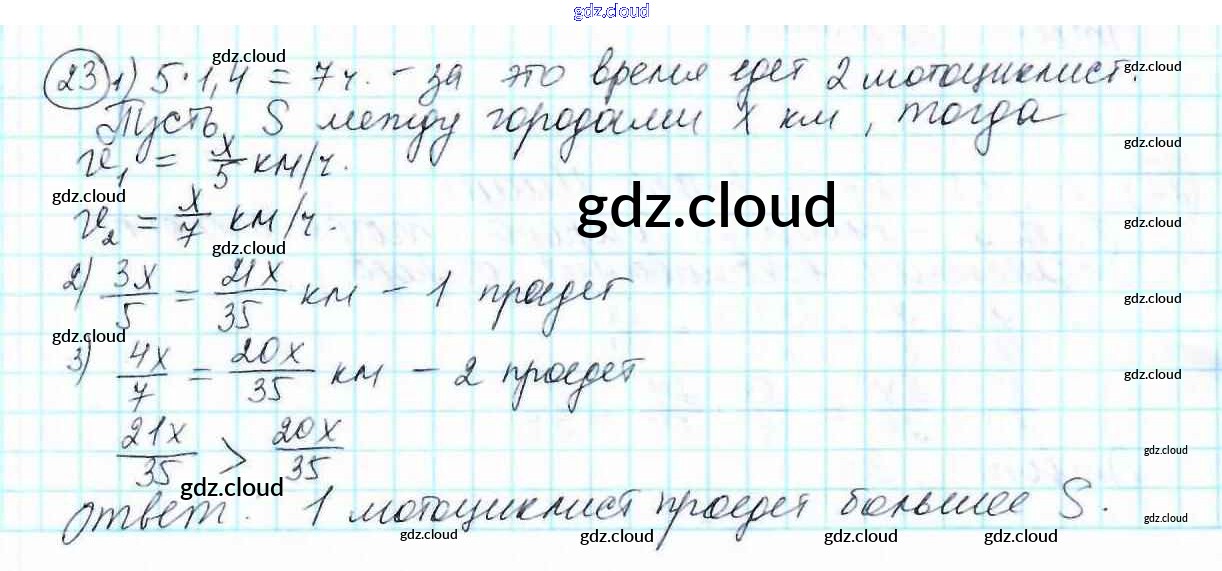 gdz.cloud
gdz.cloud
23 1) 5·1,4 = 7ч. - за это время едет 2 мотоциклист.
gdz.cloud
Пусть S между городами x км, тогда
gdz.cloud
v₁ = x/5 км/ч.
gdz.cloud
gdz.cloud
v₂ = x/7 км/ч.
gdz.cloud
gdz.cloud
2) 3x/5 = 21x/35 км - 1 проедет
gdz.cloud
gdz.cloud
3) 4x/7 = 20x/35 км - 2 проедет
gdz.cloud
21x/35 > 20x/35
gdz.cloud
gdz.cloud
ответ. 1 мотоциклист проедет большее S.
gdz.cloud
gdz.cloud
gdz.cloud
gdz.cloud
gdz.cloud